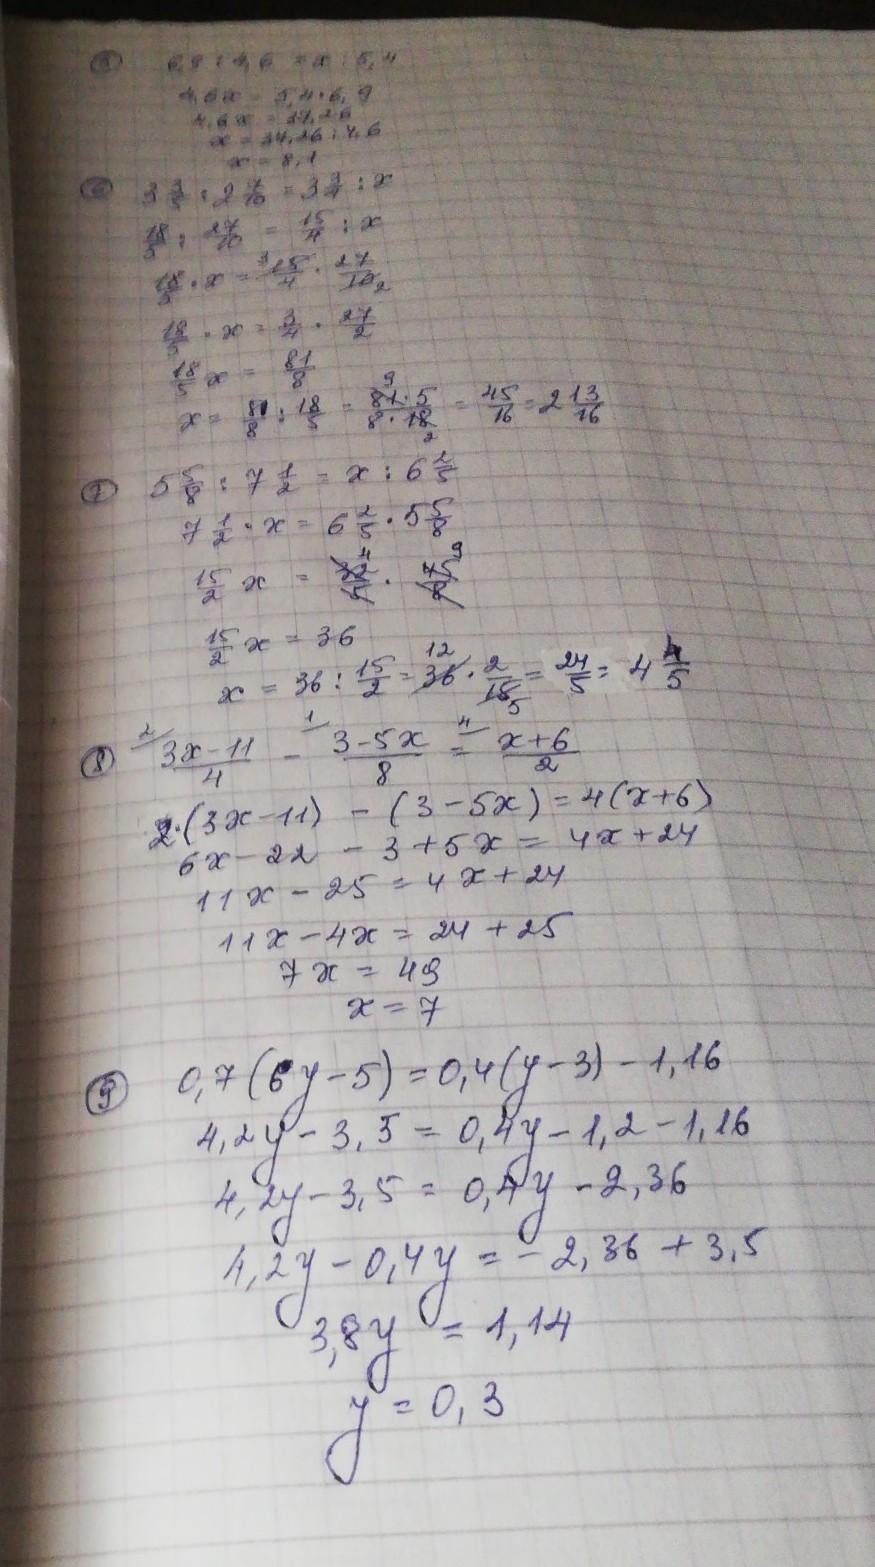 ⑤ 6,9 : 4,6 = x : 5,4
4,6x = 5,4 · 6,9
4,6x = 37,26
x = 37,26 : 4,6
x = 8,1
⑥ 3 3/5 : 2 7/10 = 3 3/4 : x
18/5 : 27/10 = 15/4 : x
18/5 · x = 3 15/4 · 27/10 2
18/5 · x = 3/4 · 27/2
18/5 x = 81/8
x = 81/8 : 18/5 = 9 81·5/8·18 2 = 45/16 = 2 13/16
⑦ 5 5/8 : 7 1/2 = x : 6 2/5
7 1/2 · x = 6 2/5 · 5 5/8
15/2 x = 32/5 4 · 45/8 9
15/2 x = 36
x = 36 : 15/2 = 12 36 · 2/15 5 = 24/5 = 4 4/5
⑧ 2/ 3x-11/4 - 1/ 3-5x/8 = 4/ x+6/2
2·(3x-11) - (3-5x) = 4(x+6)
6x-22 - 3+5x = 4x+24
11x - 25 = 4x+24
11x-4x = 24+25
7x = 49
x = 7
⑨ 0,7(6y-5) = 0,4(y-3) - 1,16
4,2y - 3,5 = 0,4y - 1,2 - 1,16
4,2y - 3,5 = 0,4y - 2,36
4,2y - 0,4y = - 2,36 + 3,5
3,8y = 1,14
y = 0,3